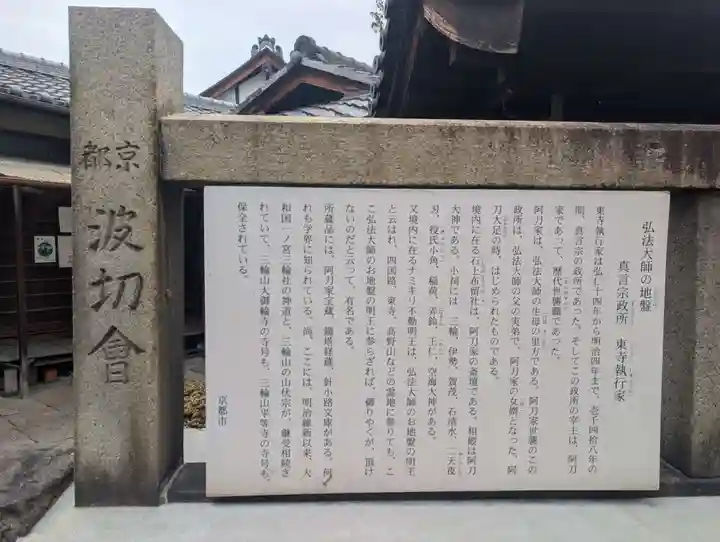 京都
波切會
弘法大師の地盤
真言宗政所 東寺執行家
東寺執行家は弘仁十四年から明治四年まで、壱千四拾八年の
間、真言宗の政所であった。そしてこの政所の宰主は、阿刀
家であって、歴代世襲職であった。
阿刀家は、弘法大師の生母の里方である。阿刀家世襲のこの
政所は、弘法大師の父の実弟で、阿刀家の女婿となった、阿
刀大足の時、はじめられたものである。
境内に在る石上布留社は、阿刀家の斎壇である。相殿は阿刀
大神である。小祠には、三輪、伊勢、賀茂、石清水、二天夜
叉、役氏小角、稲荷、弄鈴、王仁、空海大神がある。
又境内に在るナミキリ不動明王は、弘法大師のお地盤の明王
と云はれ、四国路、東寺、高野山などの霊地に参りても、こ
こ弘法大師のお地盤の明王に参らざれば、御りやくが、頂け
ないのだと云って、有名である。
所蔵品には、阿刀家宝蔵、鐵塔経蔵、針小路文庫がある。何
れも学界に知られている。尚、ここには、明治維新以来、大
和国一ノ宮三輪社の神道と、三輪山の山伏宗が、継受相続さ
れていて、三輪山大御輪寺の寺号も、三輪山平等寺の寺号も、
保全されている。
京都市